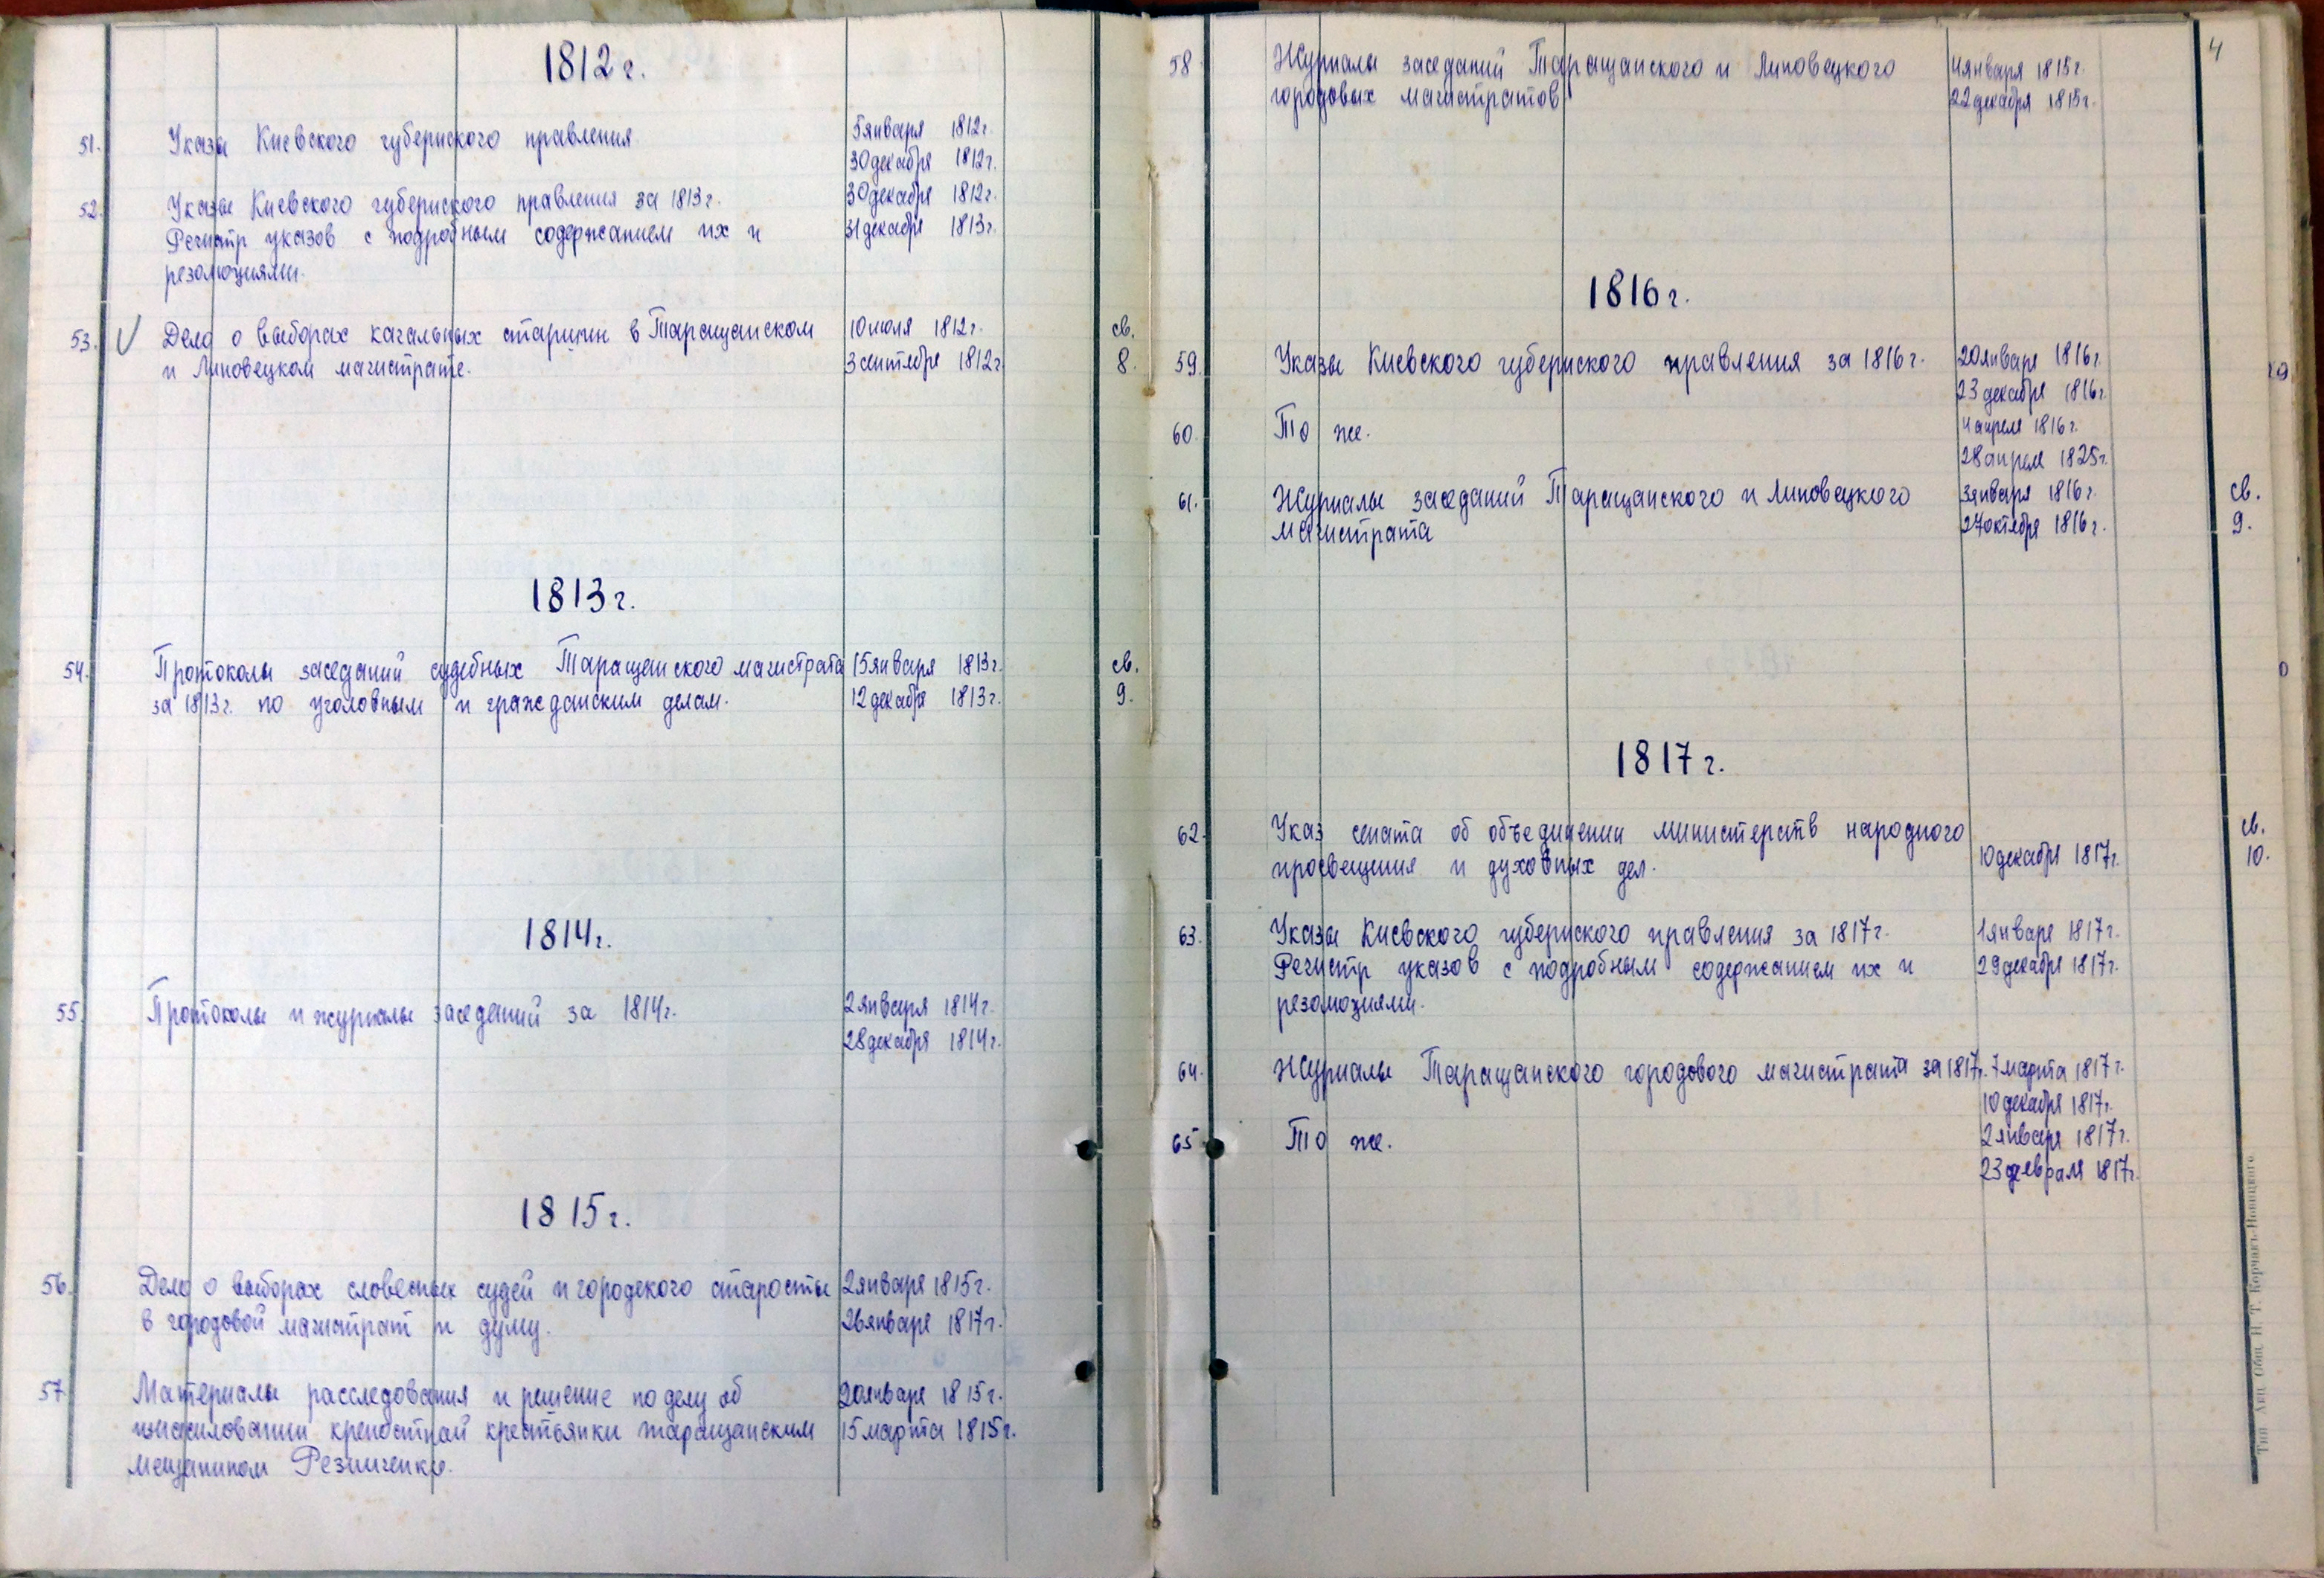 1812 г.
51. Указы Киевского губернского правления. 5 января 1812 г.
30 декабря 1812 г.
52. Указы Киевского губернского правления за 1813 г. 30 декабря 1812 г.
Регистр указов с подробным содержанием их и 31 декабря 1813 г.
резолюциями.
53. V Дело о выборах кагальных старшин в Таращанском 10 июля 1812 г. св.
и Липовецком магистрате. 3 сентября 1812 г. 8.
1813 г.
54. Протоколы заседаний судебных Таращанского магистрата 15 января 1813 г. св.
за 1813 г. по уголовным и гражданским делам. 12 декабря 1813 г. 9.
1814 г.
55. Протоколы и журналы заседаний за 1814 г. 2 января 1814 г.
28 декабря 1814 г.
1815 г.
56. Дело о выборах словесных судей и городского старосты 2 января 1815 г.
в городовой магистрат и думу. 26 января 1817 г.
57 Материалы расследования и решение по делу об 20 января 1815 г.
изнасиловании крепостной крестьянки таращанским 15 марта 1815 г.
мещанином Резниченко.
4
58 Журналы заседаний Таращанского и Липовецкого 4 января 1815 г.
городовых магистратов 22 декабря 1815 г.
1816 г.
59. Указы Киевского губернского правления за 1816 г. 20 января 1816 г.
23 декабря 1816 г.
60. То же. 4 апреля 1816 г.
28 апреля 1825 г.
61. Журналы заседаний Таращанского и Липовецкого 3 января 1816 г. св.
магистрата 27 октября 1816 г. 9.
1817 г.
62. Указ сената об объединении министерств народного св.
просвещения и духовных дел. 10 декабря 1817 г. 10.
63. Указы Киевского губернского правления за 1817 г. 1 января 1817 г.
Регистр указов с подробным содержанием их и 29 декабря 1817 г.
резолюциями.
64. Журналы Таращанского городового магистрата за 1817 г. 7 марта 1817 г.
10 декабря 1817 г.
65 То же. 2 января 1817 г.
23 февраля 1817 г.
Тип. Акц. Общ. Н. Т. Корчакъ-Новицкаго